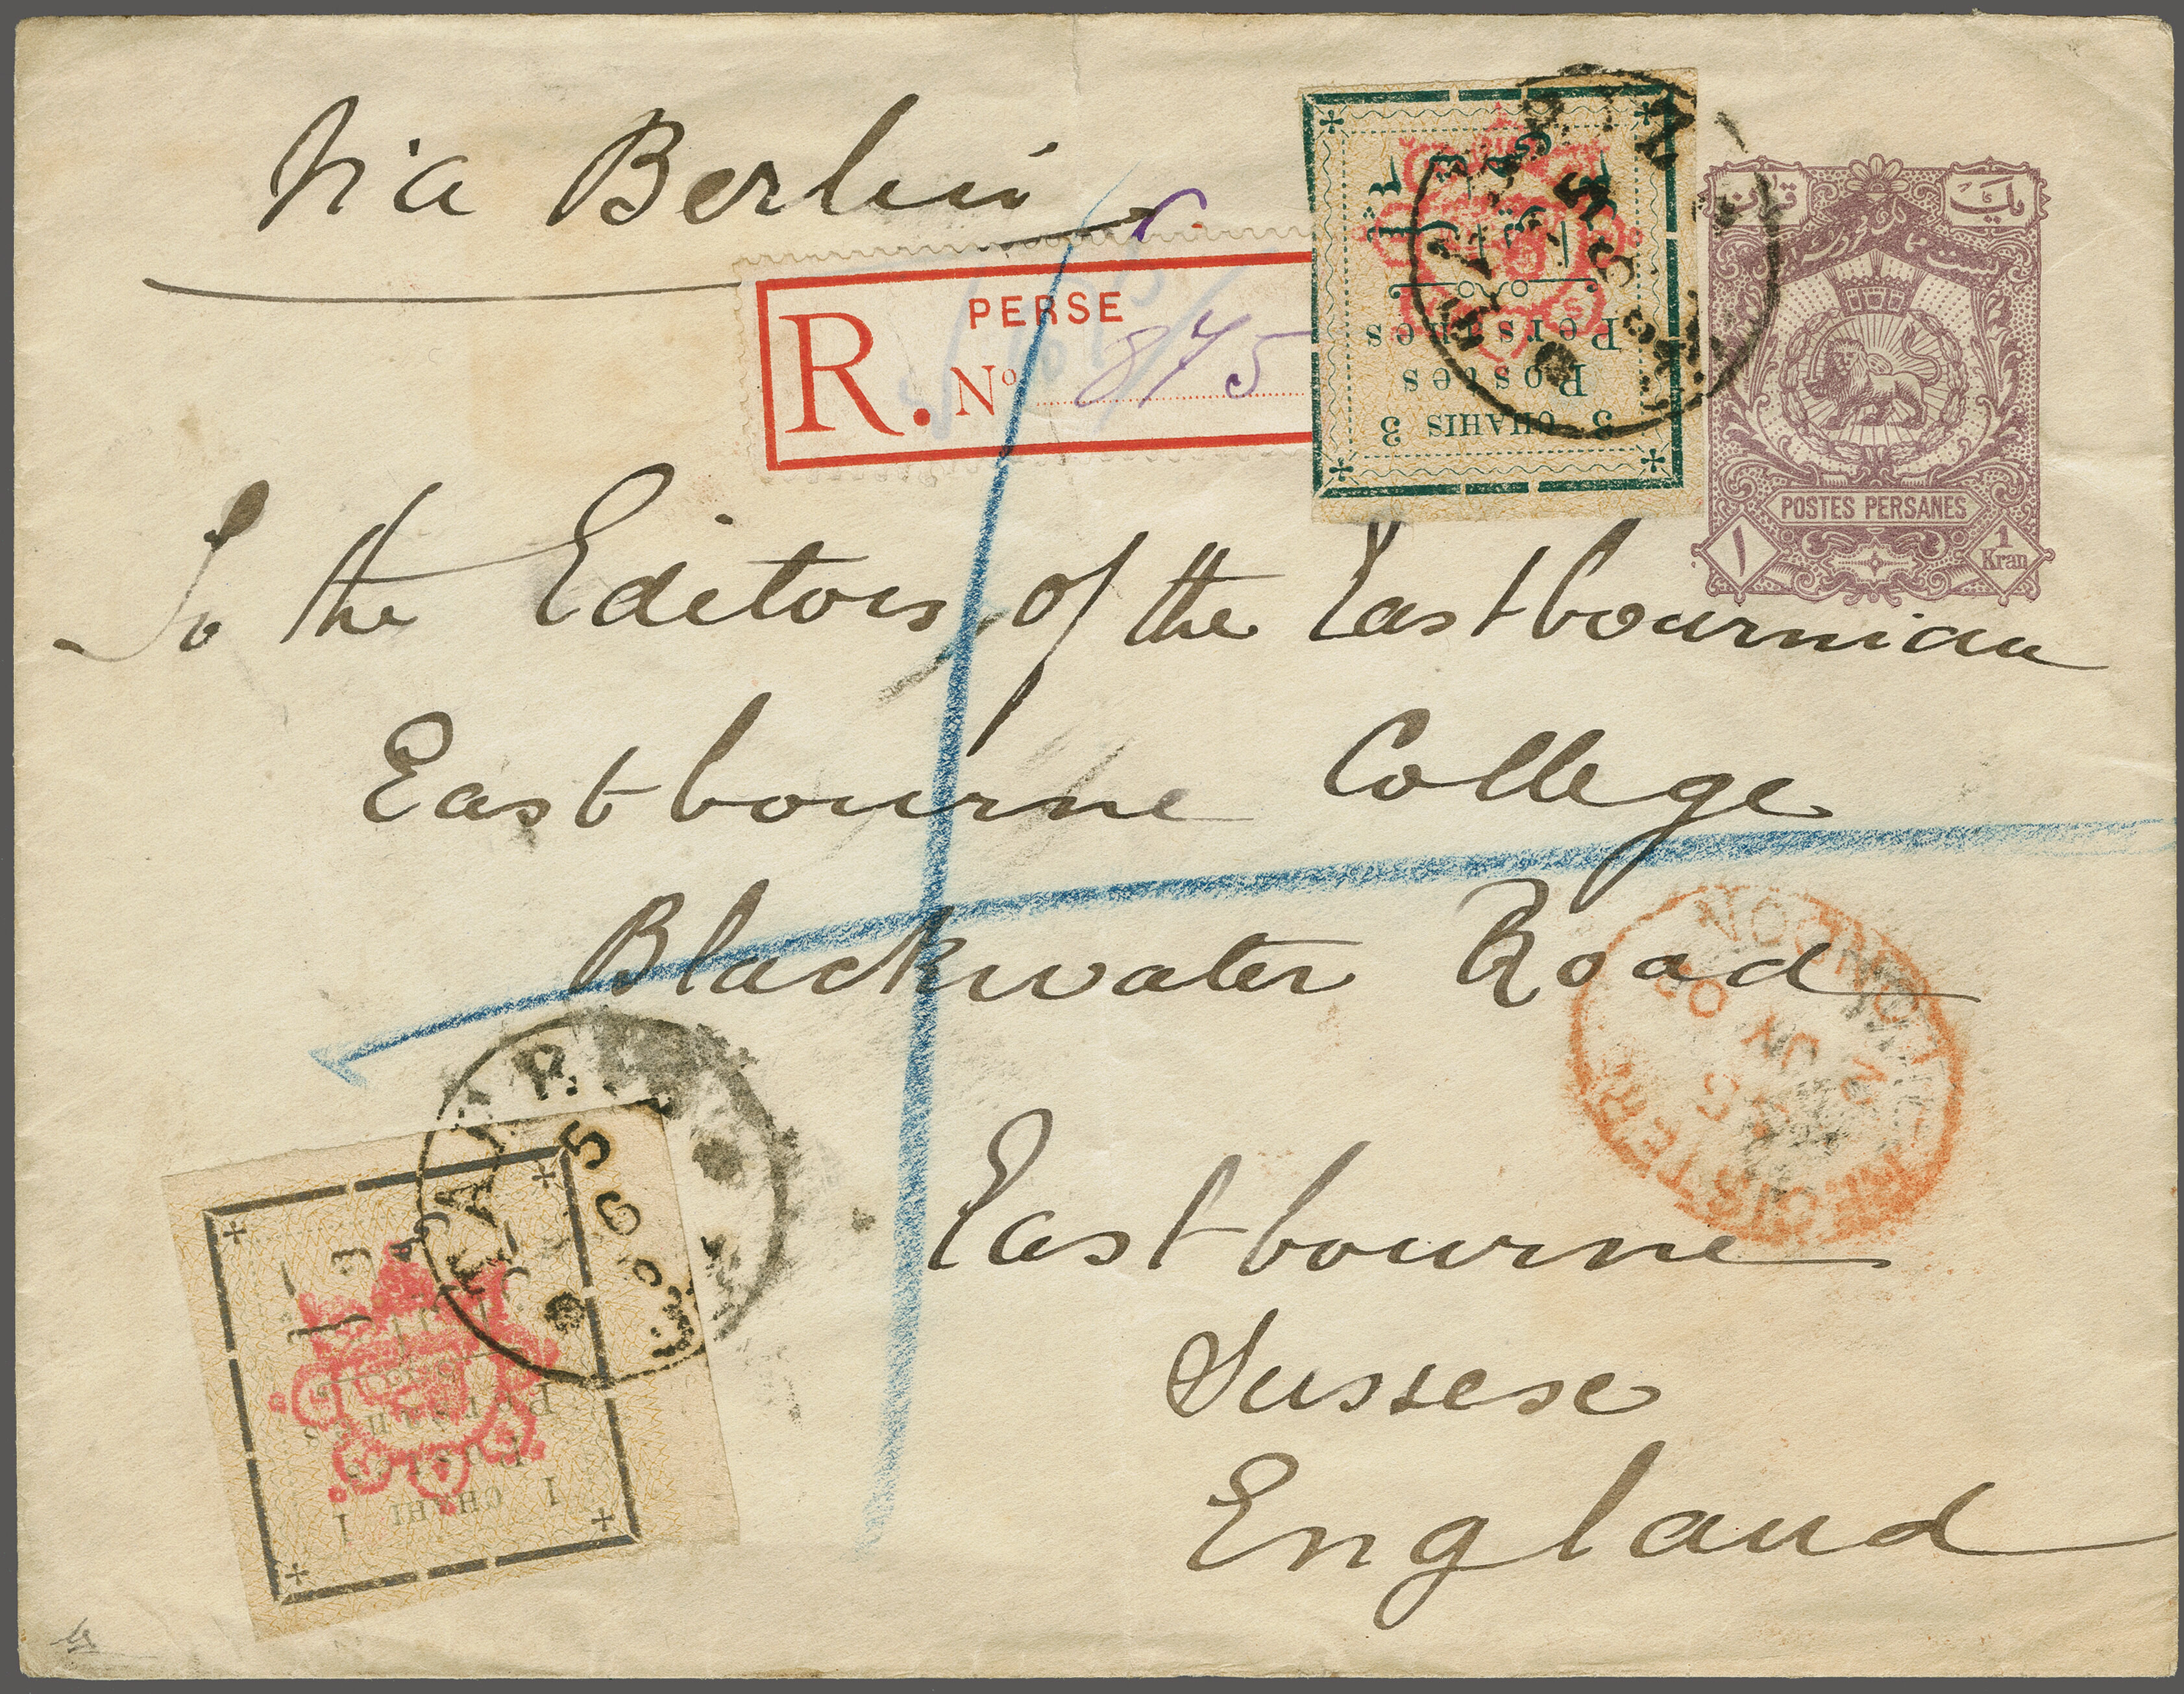 Via Berlin
PERSE
R. Nº 875
3 CHAHIS 3
Postes
Persanes
یک قران
POSTES PERSANES
۱
1
Kran
To the Editors, of the Eastbournian
Eastbourne College
Blackwater Road
Eastbourne
Sussex
England
REGISTERED
LONDON
JN 02
5
1 CHAHI 1
Postes
Persanes